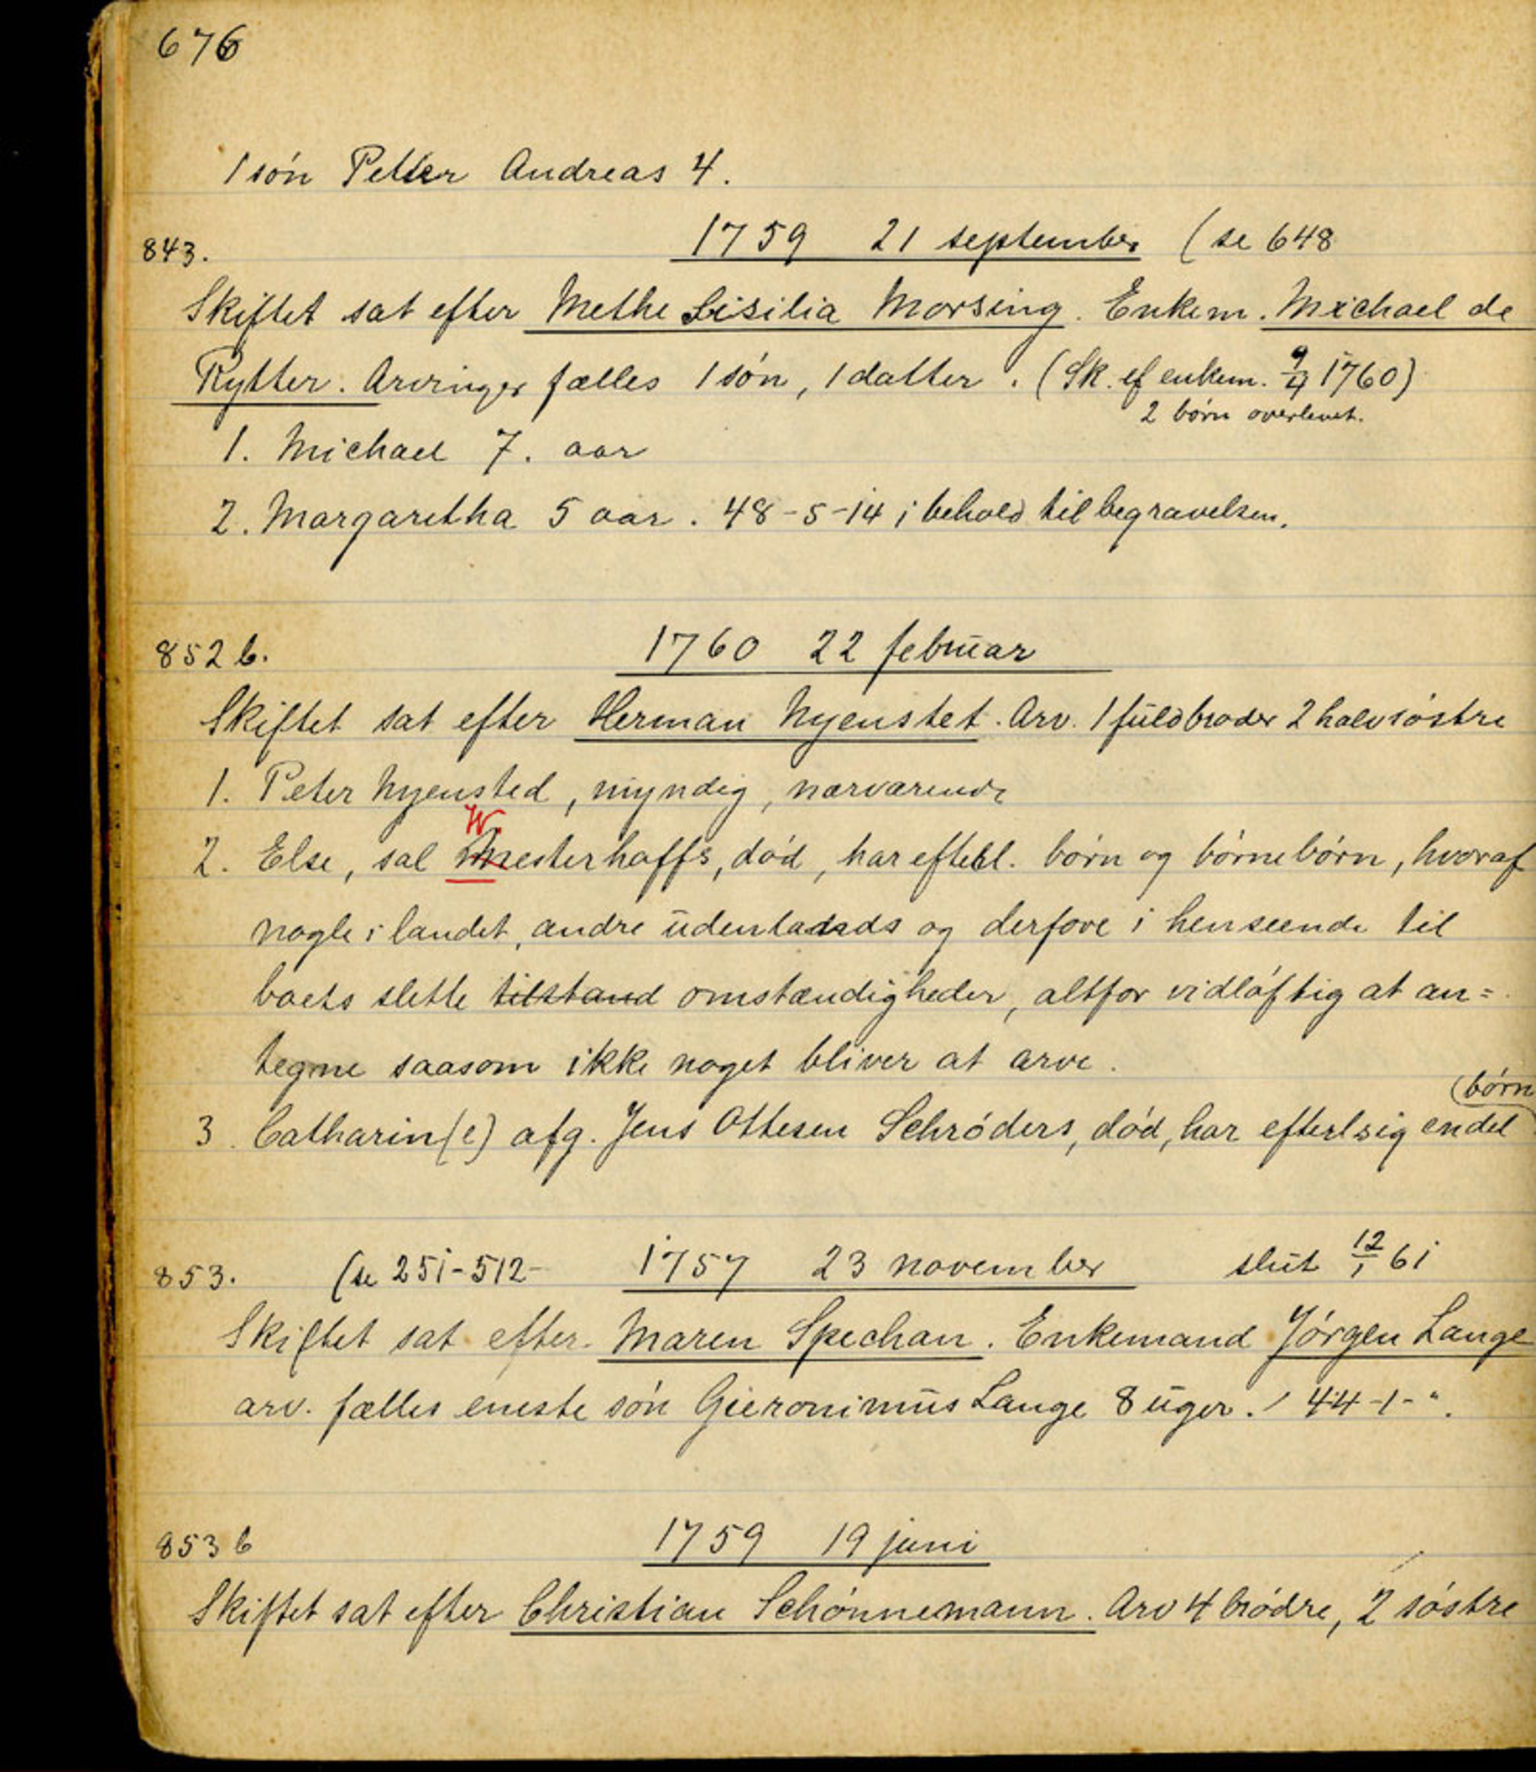 676
1 søn Petter Andreas 4.
843. 1759 21 september (se 648
Skiftet sat efter Methe Sisilia Morsing. Enkem. Michael de
Rytter. Arvinger fælles 1 søn, 1 datter. (Sk. ef enkem. 9/4 1760)
2 børn overlevet.
1. Michael 7. aar
2. Margaretha 5 aar. 48-5-14 i behold til begravelsen.
852 b. 1760 22 februar
Skiftet sat efter Herman Nyenstet. Arv. 1 fuldbroder 2 halvsøstre
1. Peter Nyensted, myndig, nærværende
W.
2. Else, sal Mesterhoffs, død, har efterl. børn og børnebørn, hvoraf
nogle i landet, andre udenlands og derfore i henseende til
boets slette tilstand omstændigheder, altfor vidløftig at an=
tegne saasom ikke noget bliver at arve.
(børn
3. Catharin(e) afg. Jens Ottesen Schrøders, død, har efterl sig endel
853. (se 251-512- 1757 23 november slut 12/1 61
Skiftet sat efter Maren Spechan. Enkemand Jørgen Lange
arv. fælles eneste søn Gieronimus Lange 8 uger. / 44-1-".
853 b 1759 19 juni
Skiftet sat efter Christian Schønnemann. Arv 4 brødre, 2 søstre